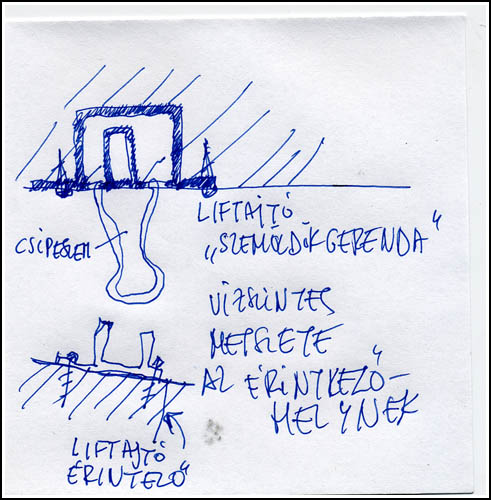 LIFTAJTÓ
„SZEMÖLDÖKGERENDA"
CSIPESZEM
VIZSZINTES
METSZETE
AZ ÉRINTKEZŐ-
HELYNEK
LIFTAJTÓ
ÉRINTEZŐ